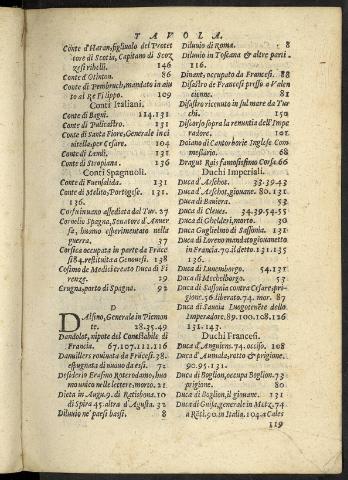 TAVOLA.
Conte d'Haran, figliuolo del Protet
tore di Scotia, Capitano di Scoz
zesi ribelli. 146
Conte d'Olsten. 86
Conte di Pembruch, mandato in aiu
to al Re Filippo. 109
Conti Italiani.
Conte di Bagni. 114.131
Conte di Pulicastro. 131
Conte di Santa Fiore, Generale in ci
nitella, per Cesare. 104
Conte di Landi. 131
Conte di Stropiana. 136
Conti Spagnuoli.
Conte di Fuensalida. 131
Conte di Melito, Portugese. 131.
136.
Corfù in uano assediata dal Tur. 27
Cornelio Spagna, Senatore d'Anuer
sa, huomo esperimentato nella
guerra. 37
Corsica occupata in parte da Fráce
si 84. restituita a Genouesi. 138
Cosimo de Medici creato Duca di Fi
renze. 29
Crugna, porto di Spagna. 92
D
DAlfino, Generale in Piemon
te. 28.35.49
Dandalot, nipote del Conestabile di
Francia. 67.107.111.116
Damillers rouinata da Francesi. 38.
espugnata di nuouo da essi. 72
Desiderio Erasmo Roterodamo, huo
mo unico nelle lettere, morto. 21
Dieta in Augu. 9. di Ratisbona. 10
di Spira 45. altra d'Agusta. 32
Diluuio ne' paesi bassi. 8
Diluuio di Roma. 8
Diluuio in Toscana & altre parti.
116.
Dinant, occupato da Francesi. 88
Disastro de Francesi presso a Valen
ciene. 81
Disastro riceuuto in sul mare da Tur
chi. 150
Discorso sopra la renuntia dell'Impe
radore. 101
Dolano di Cantorborie Inglese Com
messario. 68
Dragut Rais famosissimo Corsa. 66
Duchi Imperiali.
Duca d'Arschot. 33.39.43
Duca d'Arschot, giouane. 80.131
Duca di Bauiera. 53
Duca di Cleues. 34.39.54.55
Duca di Ghelderi, morto. 30
Duca Guglielmo di Sassonia. 131
Duca di Loreno mandato giouanetto
in Francia. 70. il detto. 131.135
136.
Duca di Luxemborgo. 54.131
Duca di Mechelborgo. 53
Duca di Sassonia contra Cesare. pri-
gione. 56. liberato. 74. mor. 87
Duca di Sauoia Luogotenẽte dello
Imperadore. 89.100.108.126
131.143.
Duchi Francesi.
Duca d'Anguien. 74. occiso. 108
Duca d'Aumala, rotto & prigione.
90.95.131.
Duca di Boglion, occupa Boglion. 73
prigione. 80
Duca di Boglion, il giouane. 131
Duca di Guisa, generale in Metz. 74
a Rẽti. 90. in Italia. 104. a Cales
119